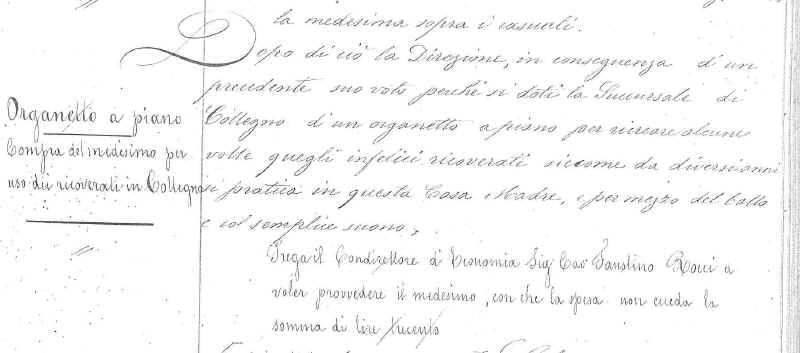 la medesima sopra i casuali.
Dopo di ciò la Direzione, in conseguenza d'un
precedente suo voto perchè si doti la Succursale di
Collegno d'un organetto a piano per ricreare alcune
volte quegli infelici ricoverati siccome da diversi anni
si pratica in questa Casa Madre, e per mezzo del ballo
e col semplice suono,
Prega il Condirettore d'Economia Sig Cav Faustino Rossi a
voler provvedere il medesimo, con che la spesa non ecceda la
somma di lire trecento
Organetto a piano
Compra del medesimo per
uso dei ricoverati in Collegno